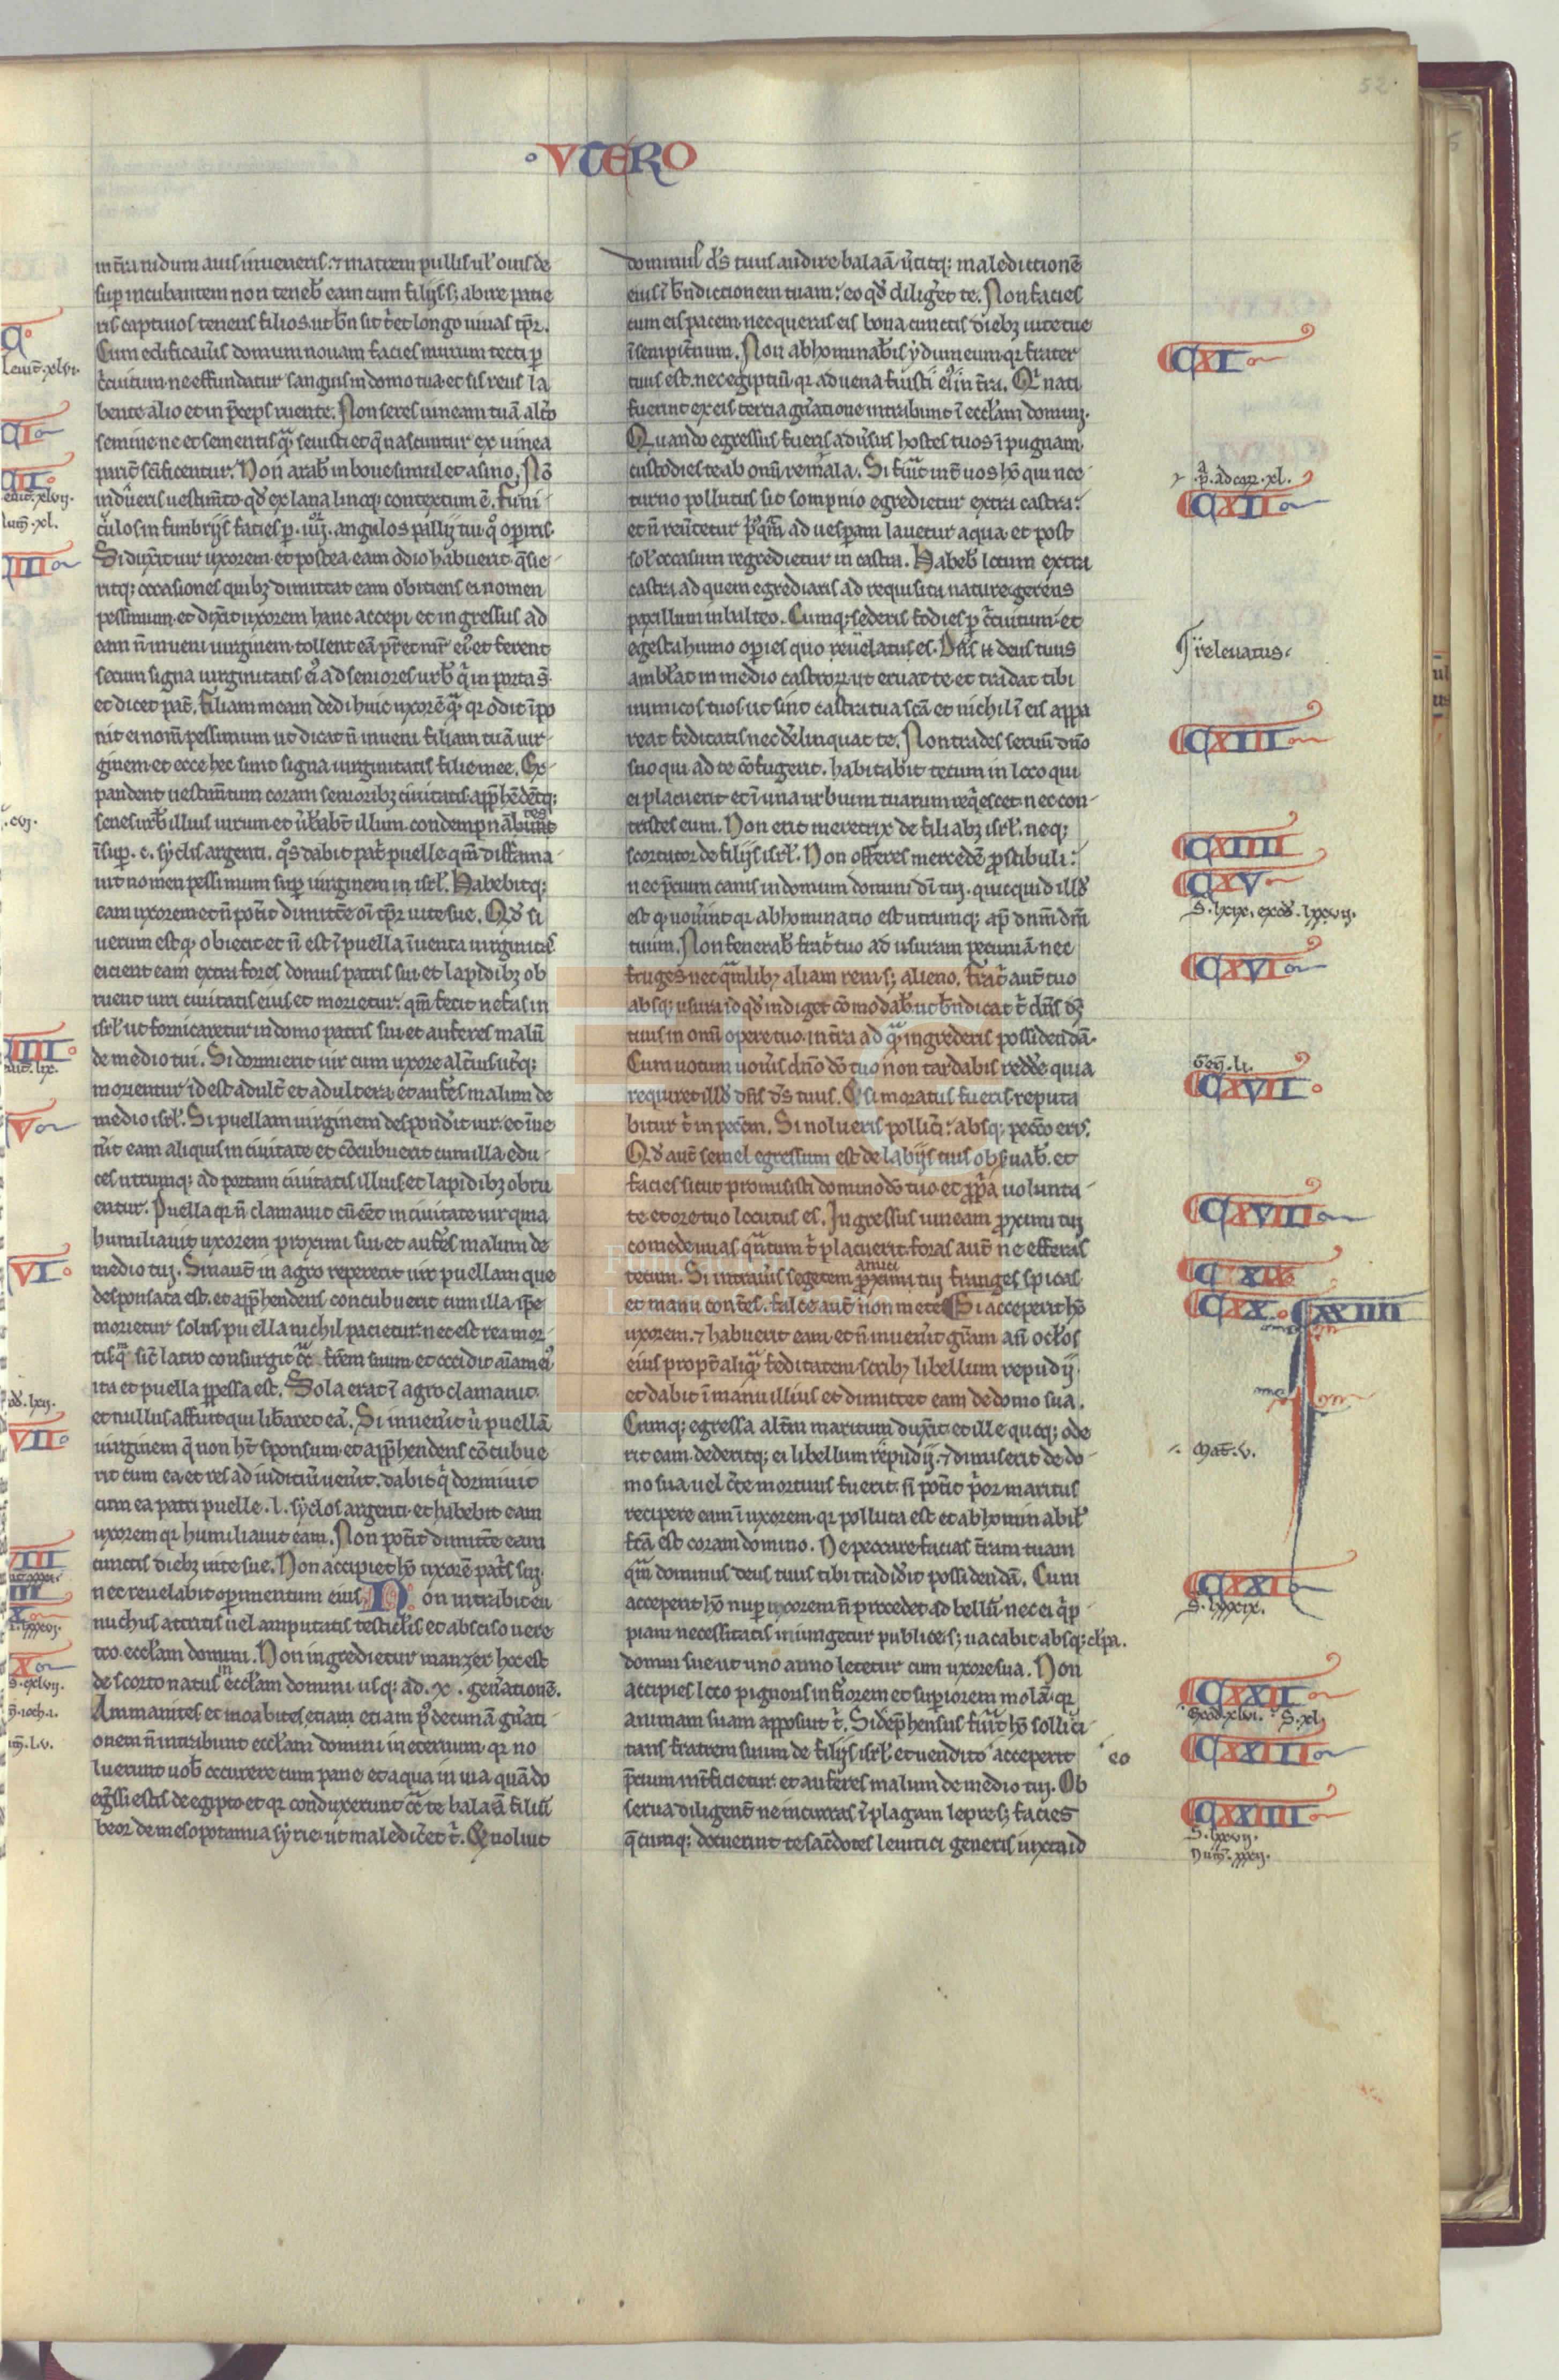 52
VTERO
in t̄ra nidum auis inueneris ⁊ matrem pullis ul' ouis de
sup incubantem non teneb̄ eam cum filijs s; abire pacie
ris captiuos tenens filios ut b̄n sit t̄ et longo uiuas tp̄r.
Cum edificau̓is domum nouam facies murum tecti p̲
c̄cuitum ne effundatur sanguis in domo tua et sis reus la
bente alio et in p̄ceps ruente. Non seres uineam tuā alt̓o
semine ne et sementis qͣ seuisti et q̄ nascuntur ex uinea
parit̓ sc̄ificentur. Non arab̄ in boue simul et asino. Nō
indueris uestim̄to qd̓ ex lana linoq; contextum ē. funi
culos in fimbrijs facies p̲ .iiii. angulos pallij tui q̊ op̲iris.
Si dux̓it uir uxorem et postea eam odio habuerit q̄sie
ritq; occasiones quibꝫ dimittat eam obitiens ei nomen
pessimum et dix̓it uxorem hanc accepi et ingressus ad
eam n̄ inueni uirginem tollent eā pr̄ et mr̄ ei̓ et ferent
secum signa uirginitatis ei̓ ad seniores urb̄ q̓ in porta s̄
et dicet pat̓. filiam meam dedi huic uxorē qͣ qr odit īpo
nit ei nom̄ pessimum ut dicat n̄ inueni filiam tuā uir
ginem et ecce hec sunt signa uirginitatis filie mee. Ex
pandent uestim̄tum coram senioribꝫ ciuitatis app̄hēdētq;
senes urb̄ illius uirum et u̓berab̄t illum condempnābunt
īsup. c. syclis argenti. qͦs dabit pat̓ puelle qm̄ diffama
uit nomen pessimum sup uirginem in isrl̓. Habebitq;
eam uxorem et n̄ pot̓it dimitt̓e oī tp̄r uite sue. Qd̓ si
uerum est q̓ obiecit et n̄ est ī puella īuenta uirginitas
eicient eam extra fores domus patris sui et lapidibꝫ ob
ruent uiri ciuitatis eius et morietur. qm̄ fecit nefas in
isrl̓ ut fornicaretur in domo patris sui et auferes malū
de medio tui. Si dormierit uir cum uxore alt̓ius ut̓q;
morientur id est adult̓ et adultera et auf̓es malum de
medio isrl̓. Si puellam uirginem despond̓it uir et īue
n̓it eam aliquis in ciuitate et cōcubuerit cum illa edu
ces utrumq; ad portam ciuitatis illius et lapidibꝫ obru
entur. Puella qr n̄ clamauit cū eēt in ciuitate uir quia
humiliauit uxorem proximi sui et auf̓es malum de
medio tui. Sin aut̄ in agro repererit uir puellam que
desponsata est. et app̄hendens concubuerit cum illa ip̄e
morietur solus puella nichil pacietur nec est rea mor
tis qͣ sic̄ latro consurgit c̄ͣ fr̄em suum et occidit aīam ei̓
ita et puella p̲pessa est. Sola erat ī agro clamauit
et nullus affuit qui lib̓aret eā. Si inuen̓it u̓ puellā
uirginem q̄ non h̄t sponsum et app̄hendens cōcubue
rit cum ea et res ad iuditiū uen̓it. dabit q̓ dormiuit
cum ea patri puelle .l. syclos argenti et habebit eam
uxorem qr humiliauit eam. Non pot̓it dimitt̓e eam
cunctis diebꝫ uite sue. Non accipiet hō uxorē pat̓s sui
nec reuelabit op̲imentum eius. Non intrabit eu
nuchus attritis uel amputatis testicl̓is et absciso uere
tro eccl̓am domini. Non ingredietur manzer hoc est
de scorto natus in eccl̓am domini usq; ad .x. gen̓ationē.
Ammanites et moabites etiam etiam p̓ decimā gn̓ati
onem n̄ intrabunt eccl̓am domini in eternum qr no
luerunt uob̄ occurere cum pane et aqua in uia quādo
egr̄ssi estis de egipto et qr conduxerunt c̄ͣ te balaā filiū
beor de mesopotamia syrie ut maledic̓et t̄. Et noluit
dominus d̄s tuus audire balaā u̓titq; maledictionē
eius ī b̄ndictionem tuam eo qd̓ dilig̓et te. Non facies
cum eis pacem nec queras eis bona cunctis diebꝫ uite tue
ī sempit̓num. Non abhominab̓is ydumeum qr frater
tuus est. nec egiptiū qr aduena fuisti ei̓ in t̄ra. Qi nati
fuerint ex eis tercia gn̓atione intrabunt ī eccl̓am domini.
Quando egressus fueris adu̓sus hostes tuos ī pugnam
custodies te ab omi re mala. Si fu̓it int̓ uos hō qui noc
turno pollutus sit sompnio egredietur extra castra
et n̄ reu̓tetur p̓usqm̄ ad uesp̲am lauetur aqua et post
sol̓ occasum regredietur in castra. Habeb̄ locum extra
castra ad quem egrediaris ad requisita nature gerens
paxillum in balteo. Cumq; sederis fodies p̲ c̄cuitum et
egesta humo op̲ies quo reuelatus es. Dn̄s n̄ deus tuus
ambl̓at in medio castror̄ ut eruat te et tradat tibi
inimicos tuos ut sint castra tua sc̄a et nichil ī eis appa
reat feditatis nec d̓elinquat te. Non trades seruū dn̄o
suo qui ad te cōfugerit. habitabit tecum in loco qui
ei placuerit et ī una urbium tuarum req̓escet nec con
tristes eum. Non erit meretrix de filiabꝫ isrl̓. neq;
scortator de filijs isrl̓. Non offeres mercedē p̲stibuli
nec p̄cium canis in domum domini dī tui. quicquid ill̓d
est q̓ uou̓int qr abhominatio est utrumq; ap̄ dn̄m dm̄
tuum. Non fenerab̄ frat̓ tuo ad usuram pecuniā nec
fruges nec qͣmlibꝫ aliam rem s; alieno. frat̓ aut̄ tuo
absq; usura id qd̓ indiget cōmodab̄ ut b̄ndicat t̄ dn̄s d̄s
tuus in omī opere tuo in t̄ra ad qͣ ingrederis possidendā.
Cum uotum uou̓is dn̄o dō tuo non tardabis redd̓e quia
requiret ill̓d dn̄s d̄s tuus. Et si moratus fueris reputa
bitur t̄ in pecc̄m. Si nolueris pollic̓i absq; pecc̄o eris.
Qd̓ aut̄ semel egressum est de labijs tuis obs̓uab̄. et
facies sicut promisisti domino dō tuo et p̲p̓a uolunta
te et ore tuo locutus es. Ingressus uineam p̲ximi tui
comede uuas qn̄tum t̄ placuerit. foras aut̄ ne efferas
tecum. Si intrau̓is segetem p̲ximi tui franges spicas
amici
et manu cont̓es. falce aut̄ non metes. Si acceperit hō
uxorem ⁊ habuerit eam et n̄ inuen̓it gr̄am an̄ ocl̓os
eius propt̓ aliqͣ feditatem scribꝫ libellum repudij
et dabit ī manu illius et dimittet eam de domo sua.
Cumq; egressa alt̓m maritum dux̓it et ille quoq; ode
rit eam dederitq; ei libellum repudij ⁊ dimiserit de do
mo sua uel c̓te mortuus fuerit. n̄ pot̓it p̓or maritus
recipere eam ī uxorem qr polluta est et abhominabil̓
fc̄a est coram domino. Ne peccare facias t̄ram tuam
qm̄ dominus deus tuus tibi tradid̓it possidendā. Cum
acceperit hō nup uxorem n̄ procedet ad bellū nec ei q̓p
piam necessitatis iniungetur publice s; uacabit absq; cl̓pa.
domui sue ut uno anno letetur cum uxore sua. Non
accipies loco pignoris inf̓iorem et superiorem molā qr
animam suam apposuit t̄. Si dep̄hensus fu̓it hō sollici
tans fratrem suum de filijs isrl̓ et uendito acceperit
eo
p̄cium int̓ficietur et auferes malum de medio tui. Ob
serua diligent̓ ne incurras ī plagam lepre s; facies
q̄cumq; docuerint te sac̓dotes leuitici generis iuxta id
CXI
.p̄. ad cor. xl.
CXII
releuatus
CXIII
CXIIII
CXV
S. lxix. exod. lxxvij.
CXVI
Gen̄. li.
CXVII
CXVIII
CXIX
CXX. XXIIII
Mat̄. v.
CXXI
S. lxxxix.
CXXII
S. xl.
CXXIII
CXXIIII
S. lxxvij.
Num̄. xxxij.